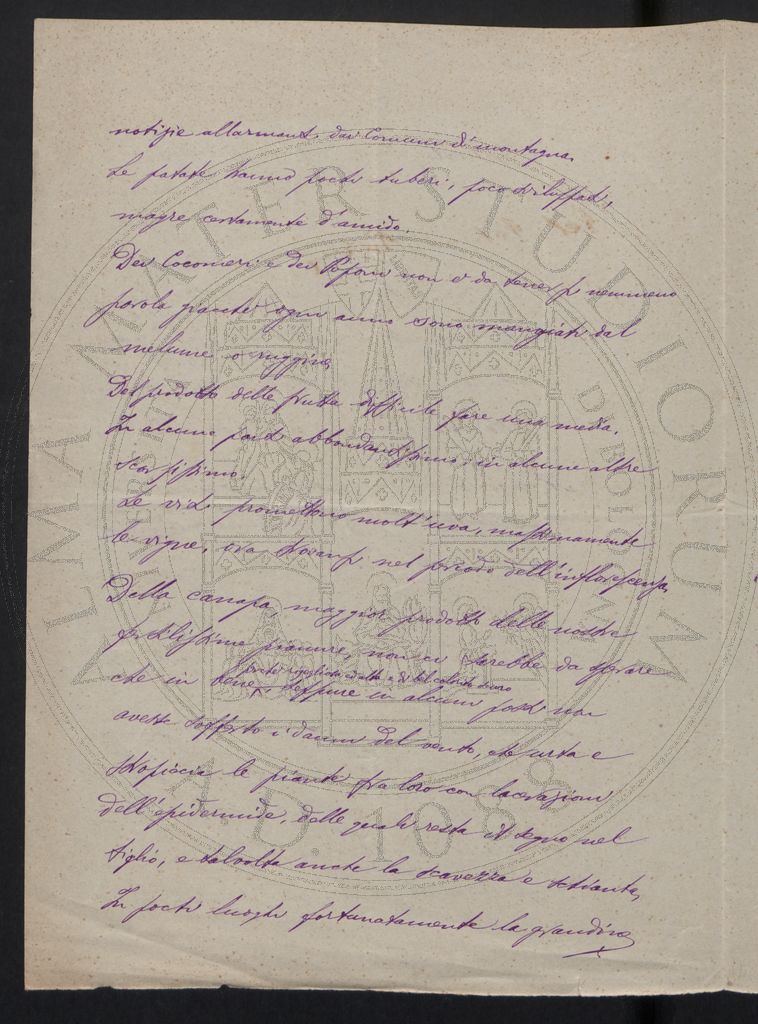 notizie allarmanti dai Comuni di montagna.
Le patate hanno pochi tuberi, poco sviluppati,
magre certamente d'amido.
Dei Cocomeri e dei Poponi non è da tenerſi nemmeno
parola giacchè ogni anno sono mangiati dal
melume o ruggine
Del prodotto delle frutta difficile fare una media.
In alcuni posti abbondantissimo, in alcune altre
scarsissimo.
Le viti promettono molt'uva, massimamente
le vigne, ora trovansi nel periodo dell'inflorescenza,
Della canapa, maggior prodotto delle nostre
fertilissime pianure, non ci sarebbe da sperare
perchè rigogliosa ed alta e di bel colorito
che in bene, seppure in alcuni posti non
avesse sofferto i danni del vento, che urta e
stropiccia le piante fra loro con lacerazioni
dell'epidermide, delle quali resta il segno nel
tiglio, e talvolta anche la scavezza e schianta,
In pochi luoghi fortunatamente la grandine
ALMA MATER STUDIORUM
A.D. 1088